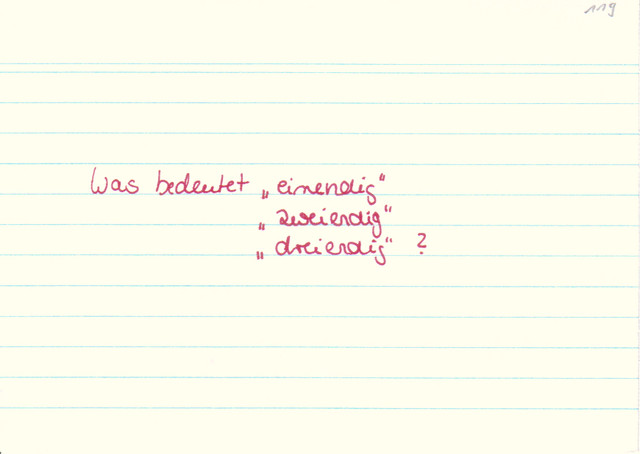 119
Was bedeutet „einendig"
„zweiendig"
„dreiendig" ?